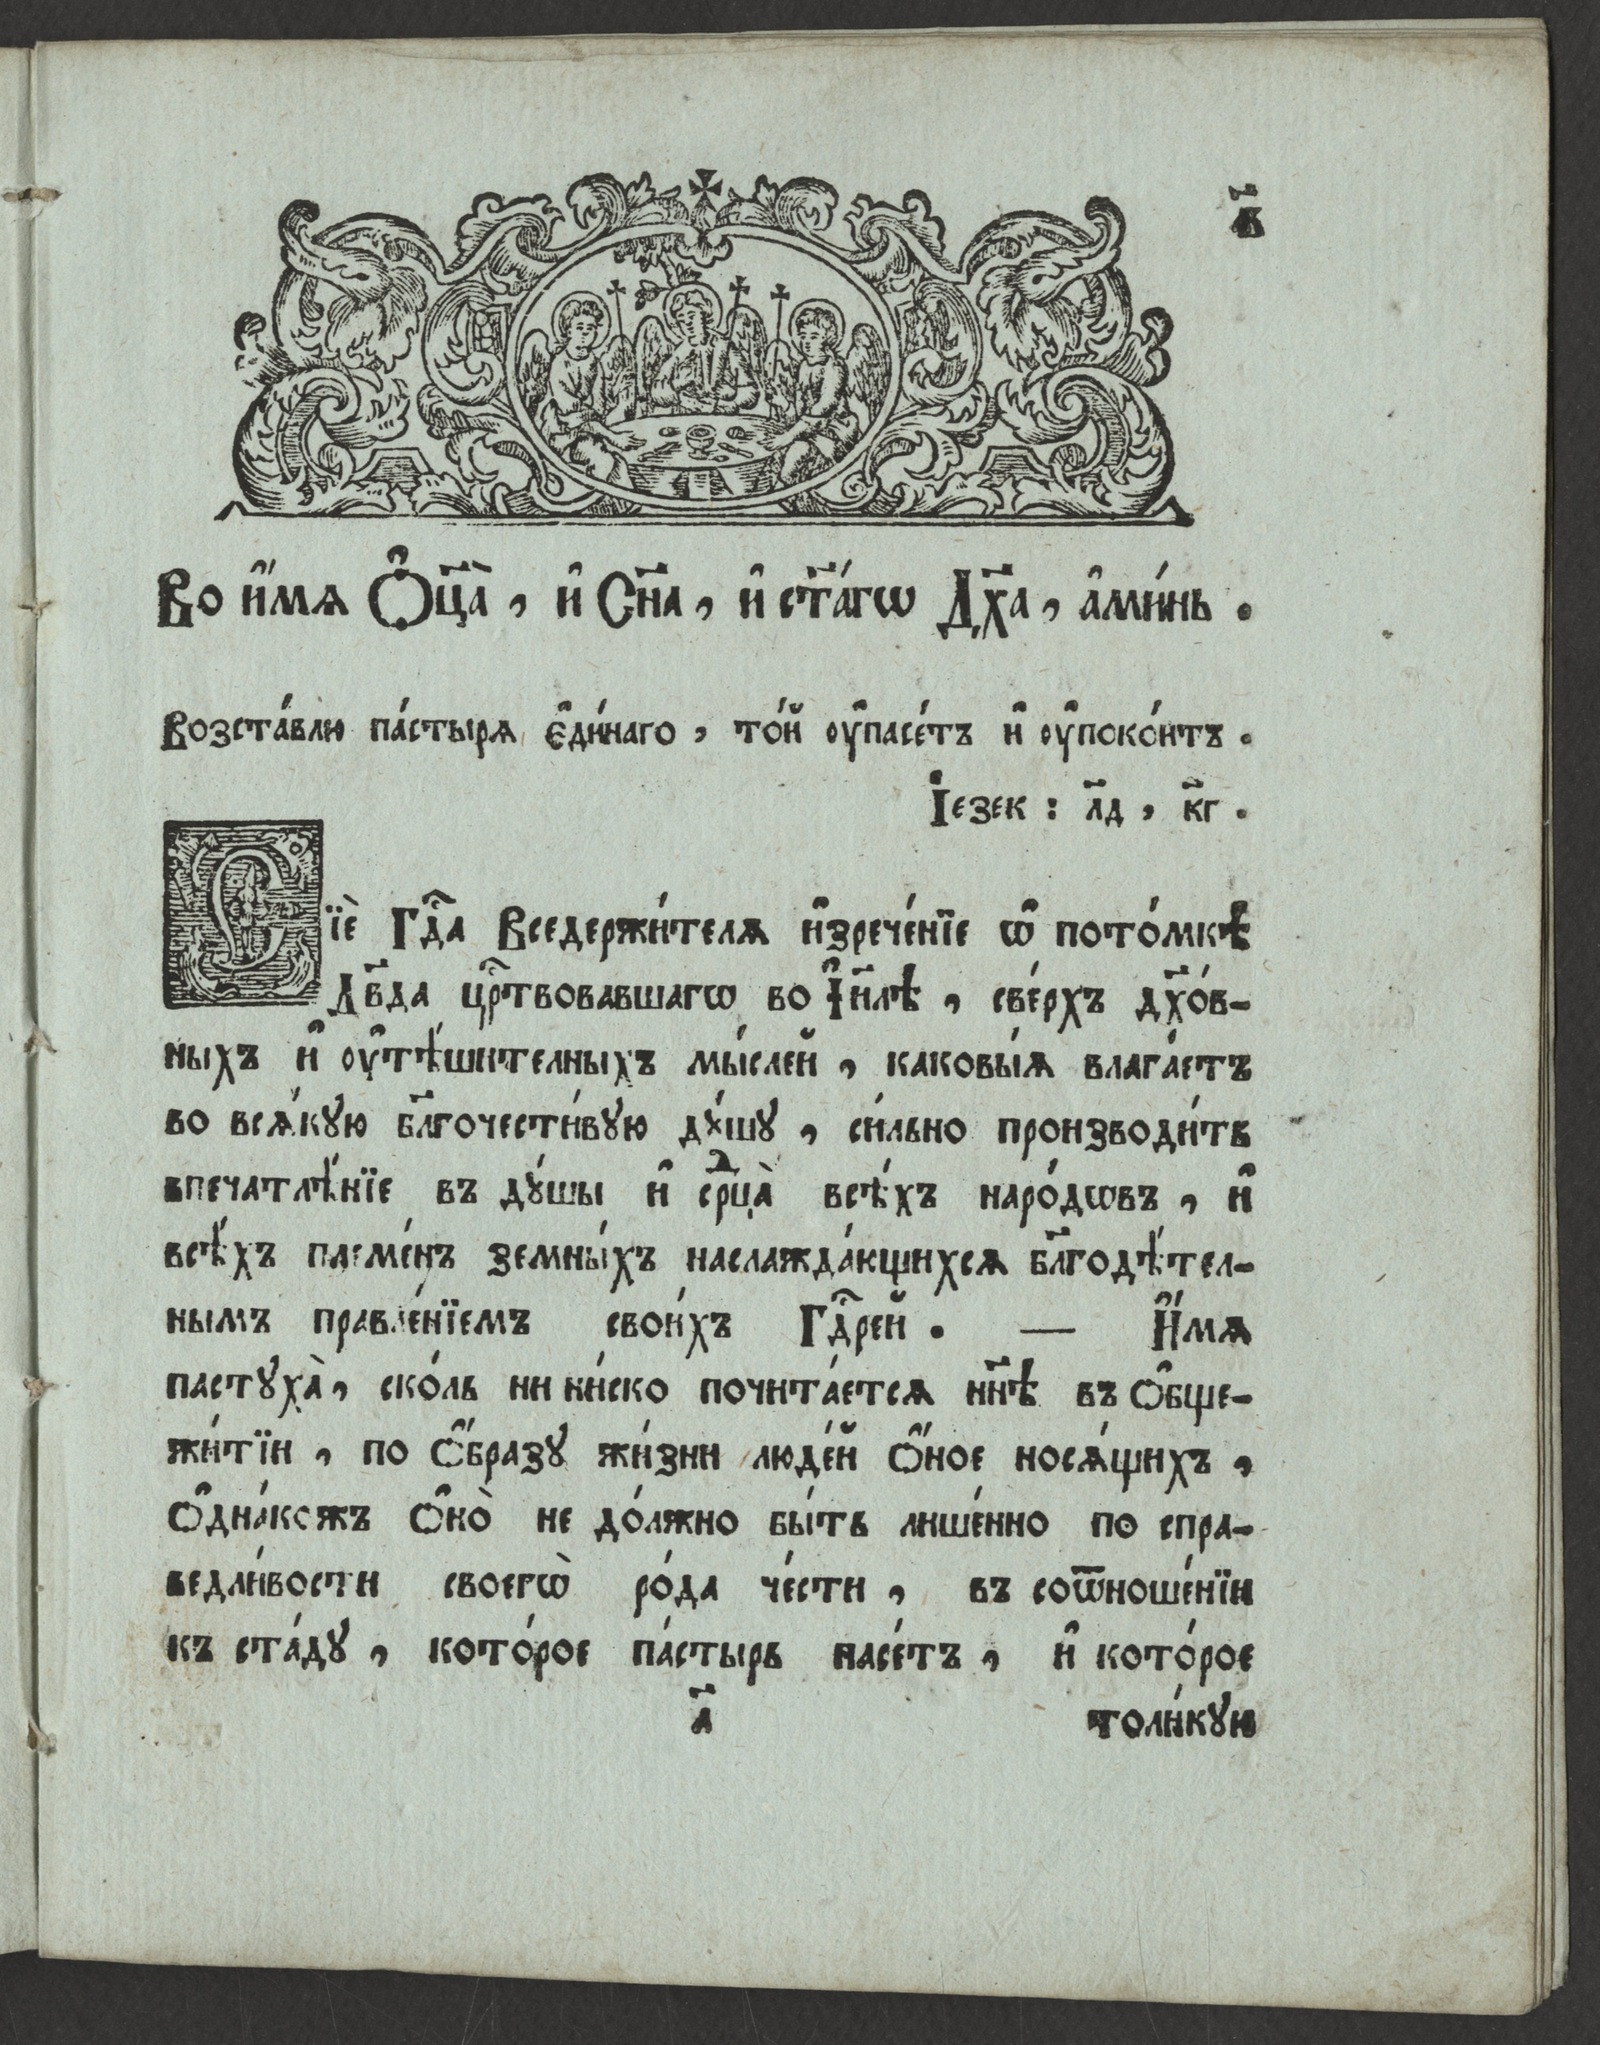 в҃
Во и҆́мѧ Ѻ҆ц҃а̀, и҆ Сн҃а, и҆ ст҃а́гѡ Дх҃а, а҆ми́нь.
Возста́влю па́стырѧ є҆ди́наго, то́й ᲂу҆пасе́тъ и҆ ᲂу҆поко́итъ.
Іезек: л҃д, к҃г.
Сїѐ Гдⷭ҇а Вседержи́телѧ и҆зрече́нїе ѡ҆ пото́мкѣ
Дв҃да црⷭ҇твовавшагѡ во І҆и҃лѣ, све́рхъ дх҃о́в-
ныхъ и҆ ᲂу҆тѣ́шителныхъ мы́слей, каковы́ѧ влага́етъ
во всѧ́кꙋю бл҃гочести́вꙋю дꙋ́шꙋ, си́льно производи́тъ
впечатлѣ́нїе въ дꙋ́шы и҆ срⷣца̀ всѣ́хъ наро́дѡвъ, и҆
всѣ́хъ племе́нъ земны́хъ наслажда́ющихсѧ бл҃годѣ́тел-
нымъ правле́нїемъ свои́хъ Гдⷭ҇рей. — И҆́мѧ
пастꙋха̀, ско́ль ни ни́ско почита́етсѧ нн҃ѣ въ ѻ҆бще-
жи́тїи, по ѻ҆́бразꙋ жи́зни люде́й ѻ҆́ное носѧ́щихъ,
ѻ҆дна́кожъ ѻ҆но̀ не до́лжно бы́ть лише́нно по спра-
ведли́вости своегѡ̀ ро́да че́сти, въ соѿноше́нїи
къ ста́дꙋ, кото́рое па́стырь пасе́тъ, и҆ кото́рое
а҃ толи́кꙋю